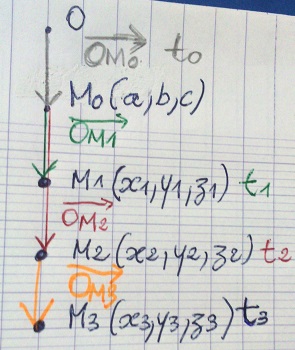 O
OM0 t0
M0 (a,b,c)
OM1
M1 (x1,y1,z1) t1
OM2
M2 (x2,y2,z2) t2
OM3
M3 (x3,y3,z3) t3